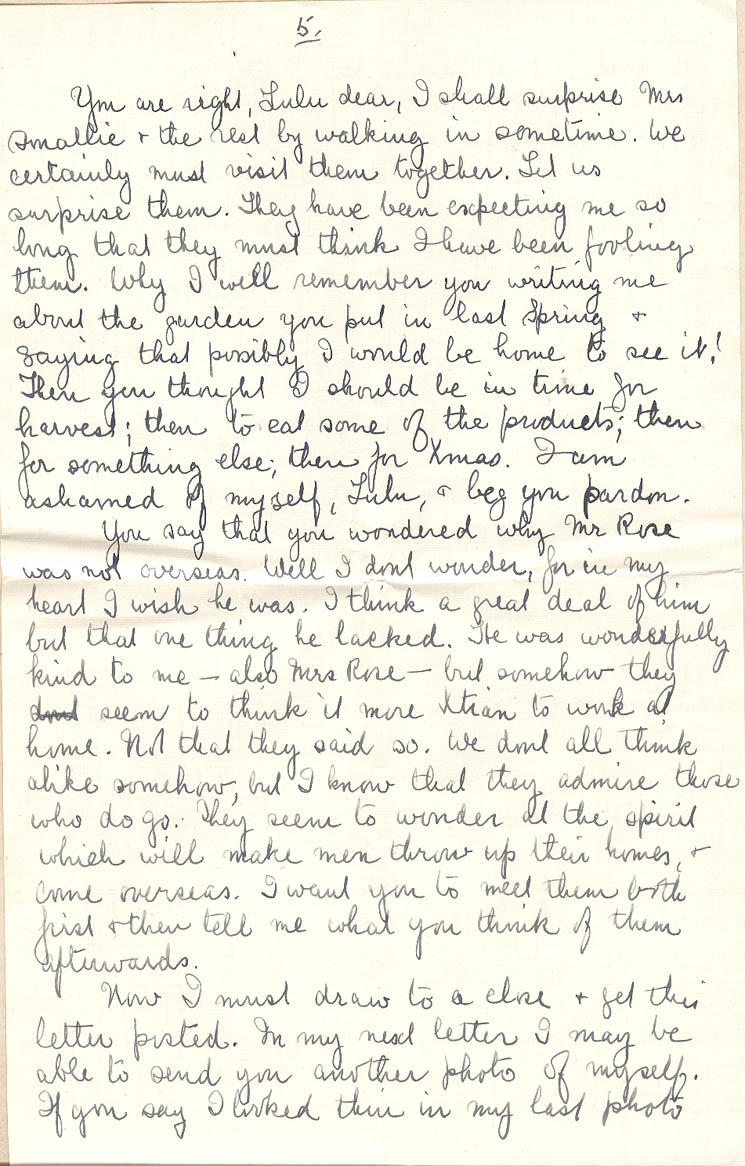 5.
You are right, Lulu dear, I shall surprise Mrs
Smallie + the rest by walking in sometime. We
certainly must visit them together. Let us
surprise them. They have been expecting me so
long that they must think I have been fooling
them. Why I well remember you writing me
about the garden you put in last Spring +
saying that possibly I would be home to see it!
Then you thought I should be in time for
harvest; then to eat some of the products; then
for something else; then for Xmas. I am
ashamed of myself, Lulu, + beg you pardon.
You say that you wondered why Mr Rose
was not overseas. Well I dont wonder, for in my
heart I wish he was. I think a great deal of him
but that one thing he lacked. He was wonderfully
kind to me — also Mrs Rose — but somehow they
dont seem to think it more Xtian to work at
home. Not that they said so. We dont all think
alike somehow, but I know that they admire those
who do go. They seem to wonder at the spirit
which will make men throw up their homes, +
come overseas. I want you to meet them both
first + then tell me what you think of them
afterwards.
Now I must draw to a close + get this
letter posted. In my next letter I may be
able to send you another photo of myself.
If you say I looked thin in my last photo